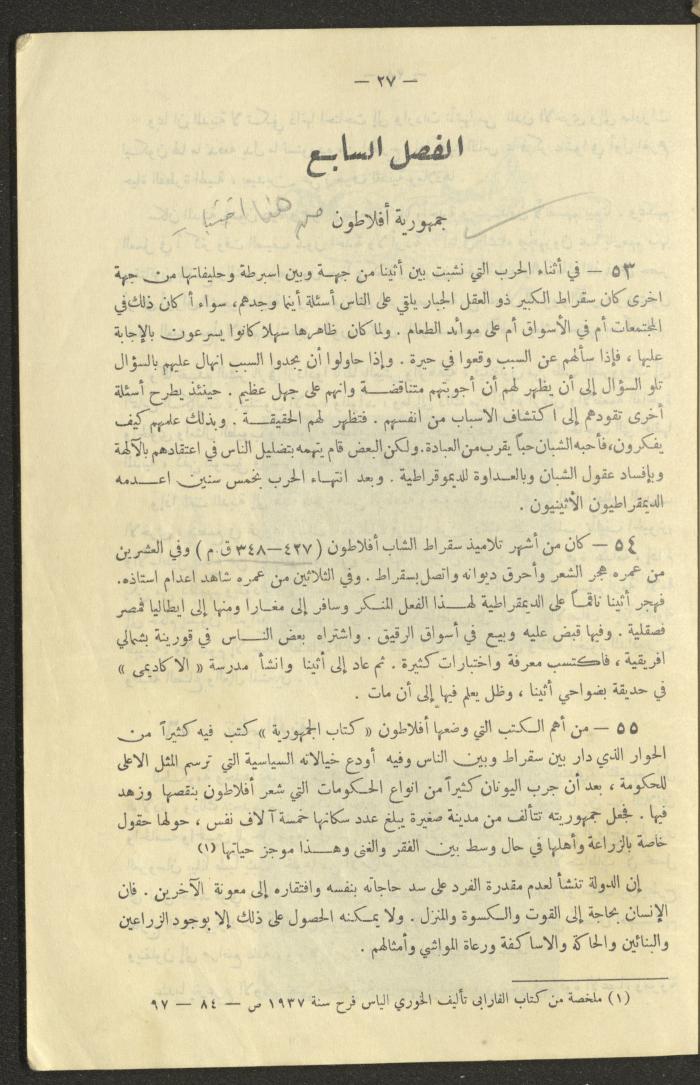 — ٢٧ —
الفصل السابع
جمهورية أفلاطون من هنا
٥٣ — في أثناء الحرب التي نشبت بين أثينا من جهة وبين اسبرطة وحليفاتها من جهة
اخرى كان سقراط الكبير ذو العقل الجبار يلقي على الناس أسئلة أينما وجدهم، سواء أ كان ذلك في
المجتمعات أم في الأسواق أم على موائد الطعام . ولما كان ظاهرها سهلا كانوا يسرعون بالإجابة
عليها ، فإذا سألهم عن السبب وقعوا في حيرة . وإذا حاولوا أن يجدوا السبب انهال عليهم بالسؤال
تلو السؤال إلى أن يظهر لهم أن أجوبتهم متناقضة وانهم على جهل عظيم . حينئذ يطرح أسئلة
أخرى تقودهم إلى اكتشاف الاسباب من انفسهم . فتظهر لهم الحقيقة . وبذلك علمهم كيف
يفكرون، فأحبه الشبان حباً يقرب من العبادة. ولكن البعض قام يتهمه بتضليل الناس في اعتقادهم بالآلهة
وبإفساد عقول الشبان وبالعداوة للديموقراطية . وبعد انتهاء الحرب بخمس سنين اعدمه
الديمقراطيون الأثينيون .
٥٤ — كان من أشهر تلاميذ سقراط الشاب أفلاطون ( ٤٢٧—٣٤٨ ق.م ) وفي العشرين
من عمره هجر الشعر وأحرق ديوانه واتصل بسقراط . وفي الثلاثين من عمره شاهد اعدام استاذه.
فهجر أثينا ناقماً على الديمقراطية لهذا الفعل المنكر وسافر إلى مغارا ومنها إلى ايطاليا فمصر
فصقلية . وفيها قبض عليه وبيع في أسواق الرقيق . واشتراه بعض الناس في قورينة بشمالي
افريقية ، فاكتسب معرفة واختبارات كثيرة . ثم عاد إلى أثينا وانشأ مدرسة « الاكاديمى »
في حديقة بضواحي أثينا ، وظل يعلم فيها إلى أن مات .
٥٥ — من أهم الكتب التي وضعها أفلاطون « كتاب الجمهورية » كتب فيه كثيراً من
الحوار الذي دار بين سقراط وبين الناس وفيه أودع خيالاته السياسية التي ترسم المثل الاعلى
للحكومة ، بعد أن جرب اليونان كثيراً من انواع الحكومات التي شعر أفلاطون بنقصها وزهد
فيها . فجعل جمهوريته تتألف من مدينة صغيرة يبلغ عدد سكانها خمسة آلاف نفس ، حولها حقول
خاصة بالزراعة وأهلها في حال وسط بين الفقر والغنى وهذا موجز حياتها (١)
إن الدولة تنشأ لعدم مقدرة الفرد على سد حاجاته بنفسه وافتقاره إلى معونة الآخرين . فان
الإنسان بحاجة إلى القوت والكسوة والمنزل . ولا يمكنه الحصول على ذلك إلا بوجود الزراعين
والبنائين والحاكة والاساكفة ورعاة المواشي وأمثالهم .
(١) ملخصة من كتاب الفارابى تأليف الخوري الياس فرح سنة ١٩٣٧ ص — ٨٤ — ٩٧